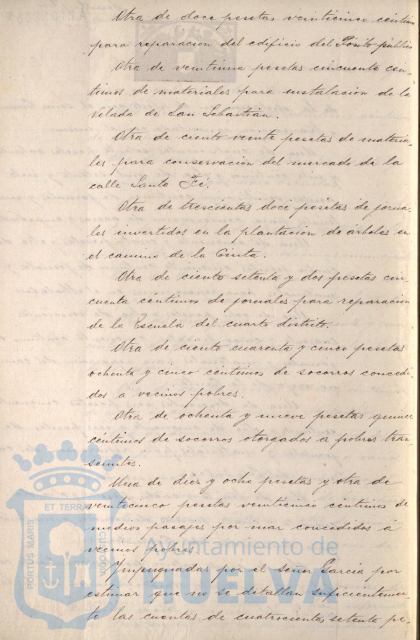 Otra de doce pesetas veinticinco céntimos
para reparación del edificio del Pósito público
Otra de veintiuna pesetas cincuenta cén-
timos de materiales para instalación de la
Velada de San Sebastián.
Otra de ciento veinte pesetas de materia-
les para conservación del mercado de la
calle Santa Fé.
Otra de trescientas doce pesetas de jorna-
les invertidos en la plantación de árboles en
el camino de la Cinta.
Otra de ciento setenta y dos pesetas cin-
cuenta céntimos de jornales para reparación
de la Escuela del cuarto distrito.
Otra de ciento cuarenta y cinco pesetas
ochenta y cinco céntimos de socorros concedi-
dos a vecinos pobres.
Otra de ochenta y nueve pesetas quince
céntimos de socorros otorgados a pobres tran-
seuntes.
Una de diez y ocho pesetas y otra de
veinticinco pesetas veinticinco céntimos de
medios pasajes por mar concedidos á
vecinos pobres
Impugnadas por el señor García por
estimar que no se detallan suficientemen-
te las cuentas de cuatrocientas setenta pe-
Ayuntamiento de
HUELVA
PORTUS MARIS
ET TERRAE
CUSTODIA